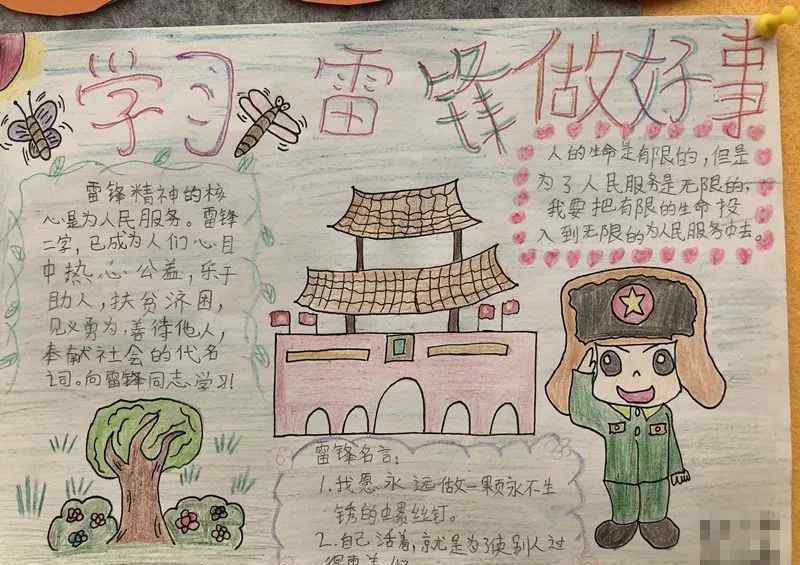 学习雷锋做好事
雷锋精神的核
心是为人民服务。雷锋
二字，已成为人们心目
中热心公益，乐于
助人，扶贫济困，
见义勇为，善待他人，
奉献社会的代名
词。向雷锋同志学习！
人的生命是有限的，但是
为了人民服务是无限的，
我要把有限的生命投
入到无限的为人民服务中去。
雷锋名言：
1.我愿永远做一颗永不生
锈的螺丝钉。
2.自己活着，就是为了使别人过
得更美